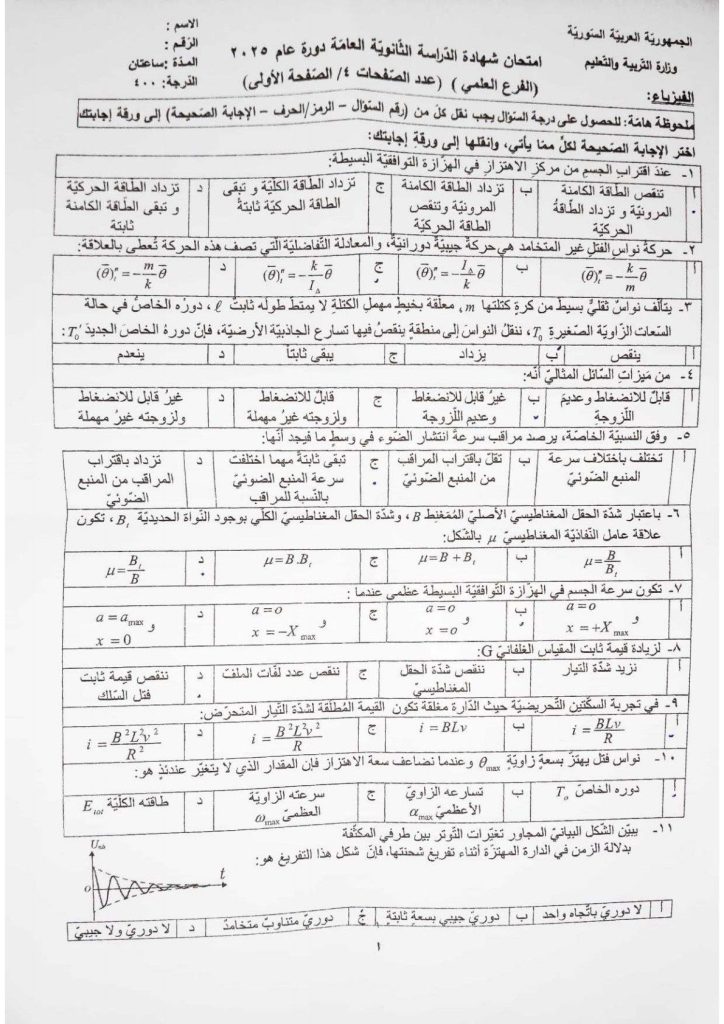 الجمهورية العربية السورية
وزارة التربية والتعليم
الفيزياء:
امتحان شهادة الدراسة الثانوية العامة دورة عام ٢٠٢٥
(الفرع العلمي) (عدد الصفحات ٤/ الصفحة الأولى)
الاسم :
الرقم :
المدة :ساعتان
الدرجة: ٤٠٠
ملحوظة هامة: للحصول على درجة السؤال يجب نقل كل من (رقم السؤال – الرمز/الحرف – الإجابة الصحيحة) إلى ورقة إجابتك
اختر الإجابة الصحيحة لكل مما يأتي، وانقلها إلى ورقة إجابتك:
١- عند اقتراب الجسم من مركز الاهتزاز في الهزازة التوافقية البسيطة:
أ تنقص الطاقة الكامنة المرونية و تزداد الطاقة الحركية
ب تزداد الطاقة الكامنة المرونية وتنقص الطاقة الحركية
ج تزداد الطاقة الكلية و تبقى الطاقة الحركية ثابتة
د تزداد الطاقة الحركية و تبقى الطاقة الكامنة ثابتة
٢- حركة نواس الفتل غير المتخامد هي حركة جيبية دورانية، والمعادلة التفاضلية التي تصف هذه الحركة تعطى بالعلاقة:
أ (θ̄)″ₜ = −(k/m) θ̄
ب (θ̄)″ₜ = −(I_Δ/k) θ̄
ج (θ̄)″ₜ = −(k/I_Δ) θ̄
د (θ̄)″ₜ = −(m/k) θ̄
٣- يتألف نواس ثقلي بسيط من كرة كتلتها m، معلقة بخيط مهمل الكتلة لا يمتط طوله ثابت ℓ ، دوره الخاص في حالة
السعات الزاوية الصغيرة T₀، ننقل النواس إلى منطقة ينقص فيها تسارع الجاذبية الأرضية، فإن دوره الخاص الجديد T₀′ :
أ ينقص ب يزداد ج يبقى ثابتاً د ينعدم
٤- من ميزات السائل المثالي أنه:
أ قابل للانضغاط وعديم اللزوجة
ب غير قابل للانضغاط وعديم اللزوجة
ج قابل للانضغاط ولزوجته غير مهملة
د غير قابل للانضغاط ولزوجته غير مهملة
٥- وفق النسبية الخاصة، يرصد مراقب سرعة انتشار الضوء في وسط ما فيجد أنها:
أ تختلف باختلاف سرعة المنبع الضوئي
ب تقل باقتراب المراقب من المنبع الضوئي
ج تبقى ثابتة مهما اختلفت سرعة المنبع الضوئي بالنسبة للمراقب
د تزداد باقتراب المراقب من المنبع الضوئي
٦- باعتبار شدة الحقل المغناطيسي الأصلي الممغنط B ، وشدة الحقل المغناطيسي الكلي بوجود النواة الحديدية Bₜ ، تكون
علاقة عامل النفاذية المغناطيسي μ بالشكل:
أ μ = B/Bₜ
ب μ = B + Bₜ
ج μ = B.Bₜ
د μ = Bₜ/B
٧- تكون سرعة الجسم في الهزازة التوافقية البسيطة عظمى عندما :
أ a = o و x = +X max
ب a = o و x = o
ج a = o و x = −X max
د a = a max و x = 0
٨- لزيادة قيمة ثابت المقياس الغلفاني G:
أ نزيد شدة التيار
ب ننقص شدة الحقل المغناطيسي
ج ننقص عدد لفات الملف
د ننقص قيمة ثابت فتل السلك
٩- في تجربة السكتين التحريضية حيث الدارة مغلقة تكون القيمة المطلقة لشدة التيار المتحرض:
أ i = BLv/R
ب i = BLv
ج i = B²L²v²/R
د i = B²L²v²/R²
١٠- نواس فتل يهتز بسعة زاوية θmax وعندما نضاعف سعة الاهتزاز فإن المقدار الذي لا يتغير عندئذ هو:
أ دوره الخاص Tₒ
ب تسارعه الزاوي الأعظمي αmax
ج سرعته الزاوية العظمى ωmax
د طاقته الكلية Etot
١١- يبين الشكل البياني المجاور تغيرات التوتر بين طرفي المكثفة
بدلالة الزمن في الدارة المهتزة أثناء تفريغ شحنتها، فإن شكل هذا التفريغ هو:
o
t
أ لا دوري باتجاه واحد ب دوري جيبي بسعة ثابتة ج دوري متناوب متخامد د لا دوري ولا جيبي
١